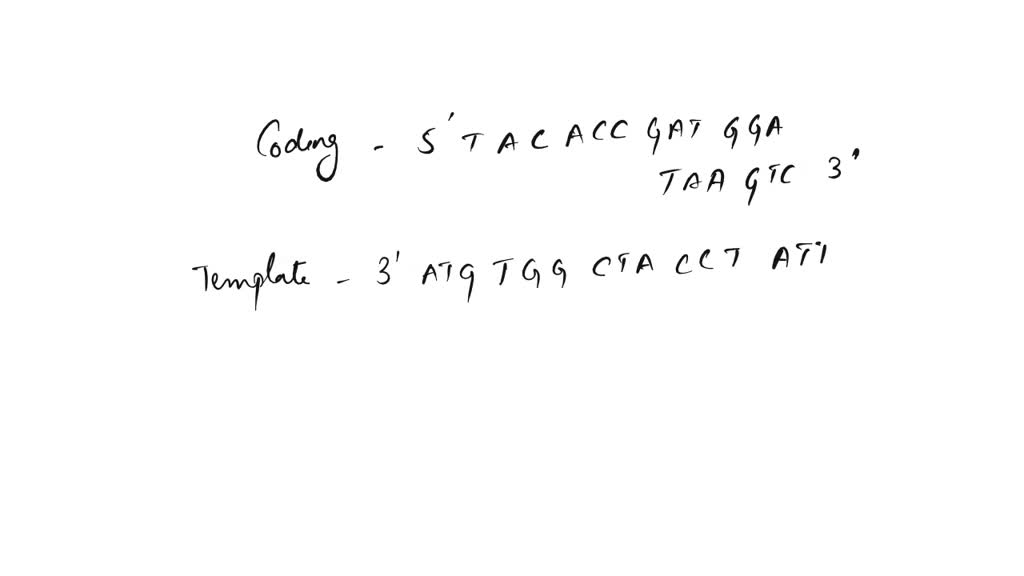 Coding - 5' T A C A C C G A T G G A
T A A G T C 3'
Template - 3' A T G T G G C T A C C T A T T